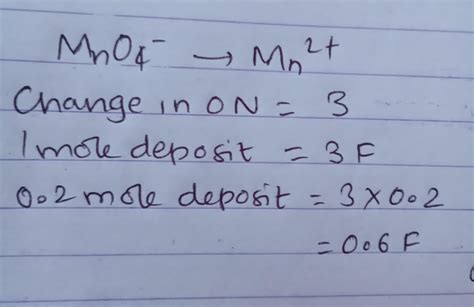 MnO4⁻ → Mn²⁺
Change in ON = 3
1 mole deposit = 3 F
0.2 mole deposit = 3 × 0.2
= 0.6 F